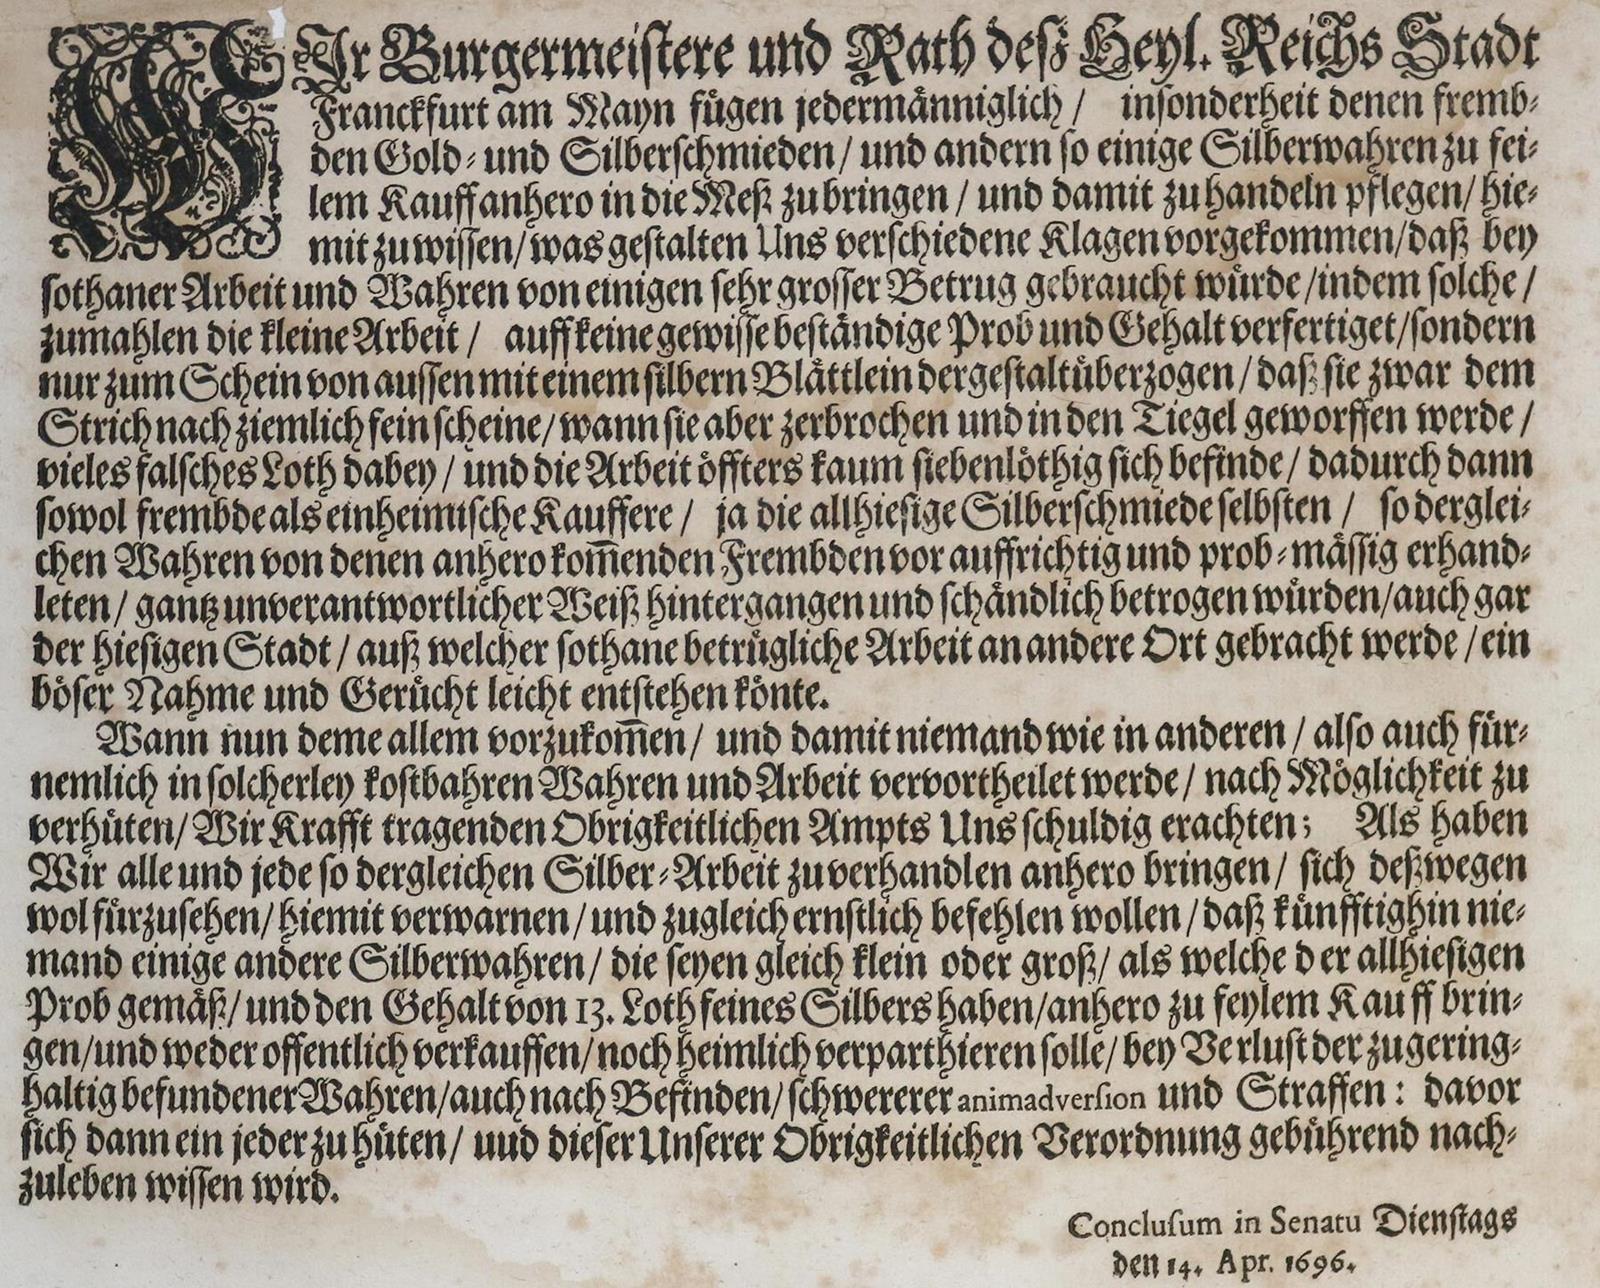 WIr Burgermeistere und Rath deß Heyl. Reichs Stadt
Franckfurt am Mayn fügen jedermänniglich / insonderheit denen fremb-
den Gold- und Silberschmieden / und andern so einige Silberwahren zu fei-
lem Kauff anhero in die Meß zu bringen / und damit zu handeln pflegen / hie-
mit zu wissen / was gestalten Uns verschiedene Klagen vorgekommen / daß bey
sothaner Arbeit und Wahren von einigen sehr grosser Betrug gebraucht würde / indem solche /
zumahlen die kleine Arbeit / auff keine gewisse beständige Prob und Gehalt verfertiget / sondern
nur zum Schein von aussen mit einem silbern Blättlein dergestalt überzogen / daß sie zwar dem
Strich nach ziemlich fein scheine / wann sie aber zerbrochen und in den Tiegel geworffen werde /
vieles falsches Loth dabey / und die Arbeit öffters kaum siebenlöthig sich befinde / dadurch dann
sowol frembde als einheimische Kauffere / ja die allhiesige Silberschmiede selbsten / so derglei-
chen Wahren von denen anhero kom̅enden Frembden vor auffrichtig und prob-mässig erhand-
leten / gantz unverantwortlicher Weiß hintergangen und schändlich betrogen würden / auch gar
der hiesigen Stadt / auß welcher sothane betrügliche Arbeit an andere Ort gebracht werde / ein
böser Nahme und Gerücht leicht entstehen könte.
Wann nun deme allem vorzukom̅en / und damit niemand wie in anderen / also auch für-
nemlich in solcherley kostbahren Wahren und Arbeit vervortheilet werde / nach Möglichkeit zu
verhüten / Wir Krafft tragenden Obrigkeitlichen Ampts Uns schuldig erachten; Als haben
Wir alle und jede so dergleichen Silber-Arbeit zu verhandlen anhero bringen / sich deßwegen
wol fürzusehen / hiemit verwarnen / und zugleich ernstlich befehlen wollen / daß künfftighin nie-
mand einige andere Silberwahren / die seyen gleich klein oder groß / als welche der allhiesigen
Prob gemäß / und den Gehalt von 13. Loth feines Silbers haben / anhero zu feylem Kauff brin-
gen / und weder offentlich verkauffen / noch heimlich verparthieren solle / bey Verlust der zu gering-
haltig befundener Wahren / auch nach Befinden / schwererer animadversion und Straffen: davor
sich dann ein jeder zu hüten / uud dieser Unserer Obrigkeitlichen Verordnung gebührend nach-
zuleben wissen wird.
Conclusum in Senatu Dienstags
den 14. Apr. 1696.